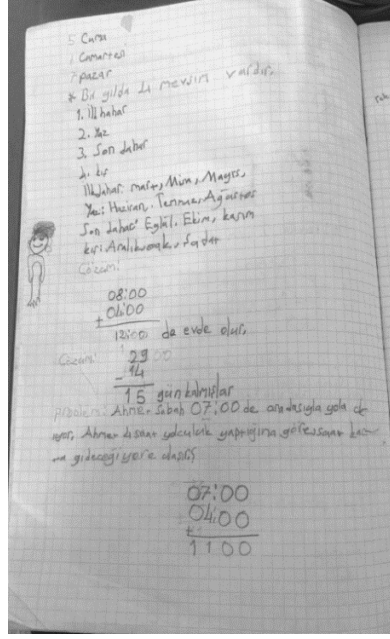 5 Cuma
Cumartesi
7 pazar
* Bir yılda 4 mevsim vardır.
1. ilkbahar
2. Yaz
3. Son bahar
4. kış
ilkbahar: mart, Nisan, Mayıs,
Yaz: Haziran, Temmuz, Ağustos
Son bahar: Eylül, Ekim, kasım
kış: Aralık, ocak, Şubat
Çözüm:
08:00
+ 04:00
12:00 de evde olur.
Çözüm:
29
- 14
15 gün kalmışlar
Problem: Ahmet Sabah 07:00 de arabasıyla yola
Ahmet 4 saat yolculuk yaptığına göre saat
gideceği yere
07:00
04:00
+
1100